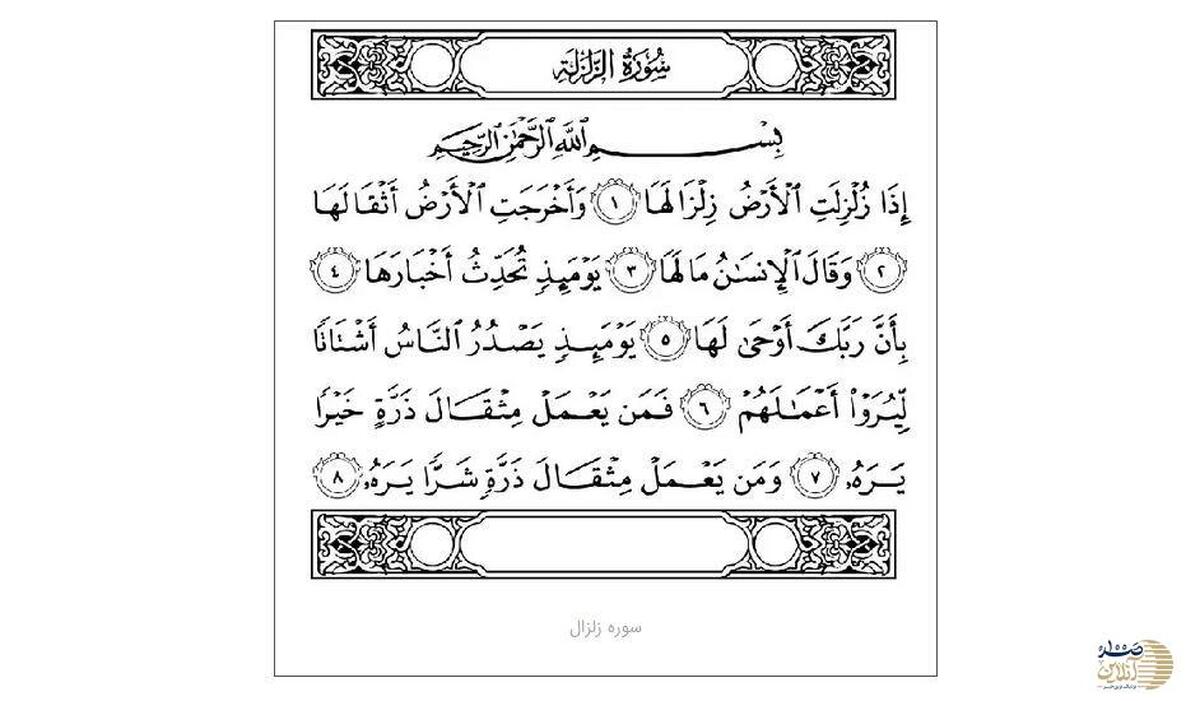 سُورَةُ الزَّلْزَلَةِ
بِسْمِ ٱللَّهِ ٱلرَّحْمَٰنِ ٱلرَّحِيمِ
إِذَا زُلْزِلَتِ ٱلْأَرْضُ زِلْزَالَهَا ١ وَأَخْرَجَتِ ٱلْأَرْضُ أَثْقَالَهَا
٢ وَقَالَ ٱلْإِنسَٰنُ مَا لَهَا ٣ يَوْمَئِذٍ تُحَدِّثُ أَخْبَارَهَا ٤
بِأَنَّ رَبَّكَ أَوْحَىٰ لَهَا ٥ يَوْمَئِذٍ يَصْدُرُ ٱلنَّاسُ أَشْتَاتًا
لِّيُرَوْا۟ أَعْمَٰلَهُمْ ٦ فَمَن يَعْمَلْ مِثْقَالَ ذَرَّةٍ خَيْرًا
يَرَهُۥ ٧ وَمَن يَعْمَلْ مِثْقَالَ ذَرَّةٍ شَرًّا يَرَهُۥ ٨
سوره زلزال
صدر
آنلاین